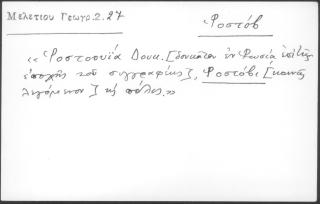 Μελετίου Γεωγρ. 2.27
Φοστόβ
« Ροστοουΐα Δουκ. [δουκᾶτον ἐν Ρωσίᾳ ἐπὶ τῆς
ἐποχῆς τοῦ συγγραφέως], Ροστόβι [κοινῶς
λεγόμενον] ἡ πόλις.»